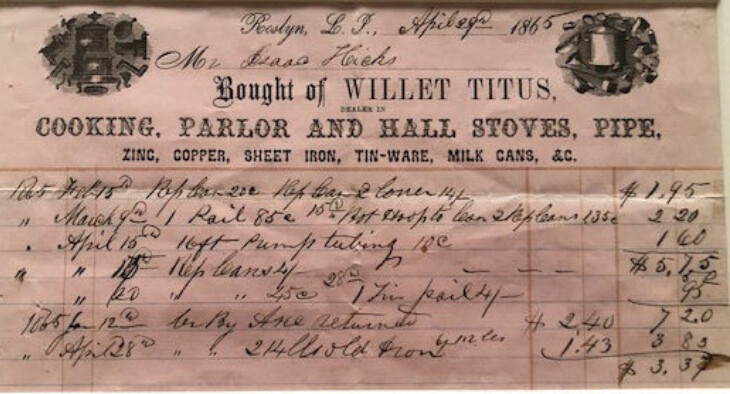 Roslyn, L. I., April 29th 1865
Mr Isaac Hicks
Bought of WILLET TITUS,
DEALER IN
COOKING, PARLOR AND HALL STOVES, PIPE,
ZINC, COPPER, SHEET IRON, TIN-WARE, MILK CANS, &C.
1865 15th 20c 2 14/- $ 1.95
" March 9th 1 Pail 85c 15th to 2 135c 2 20
" April 15th 16ft Pump tubing 10c 1 60
$ 5.75
" " 4/- 50
" 20 " " 45c 28th 1 Tin pail 4/- 95
1865 12th Cr By Axe returned $ 2.40 7 20
" April 28th " " old Iron 1.43 3 83
$ 3.37